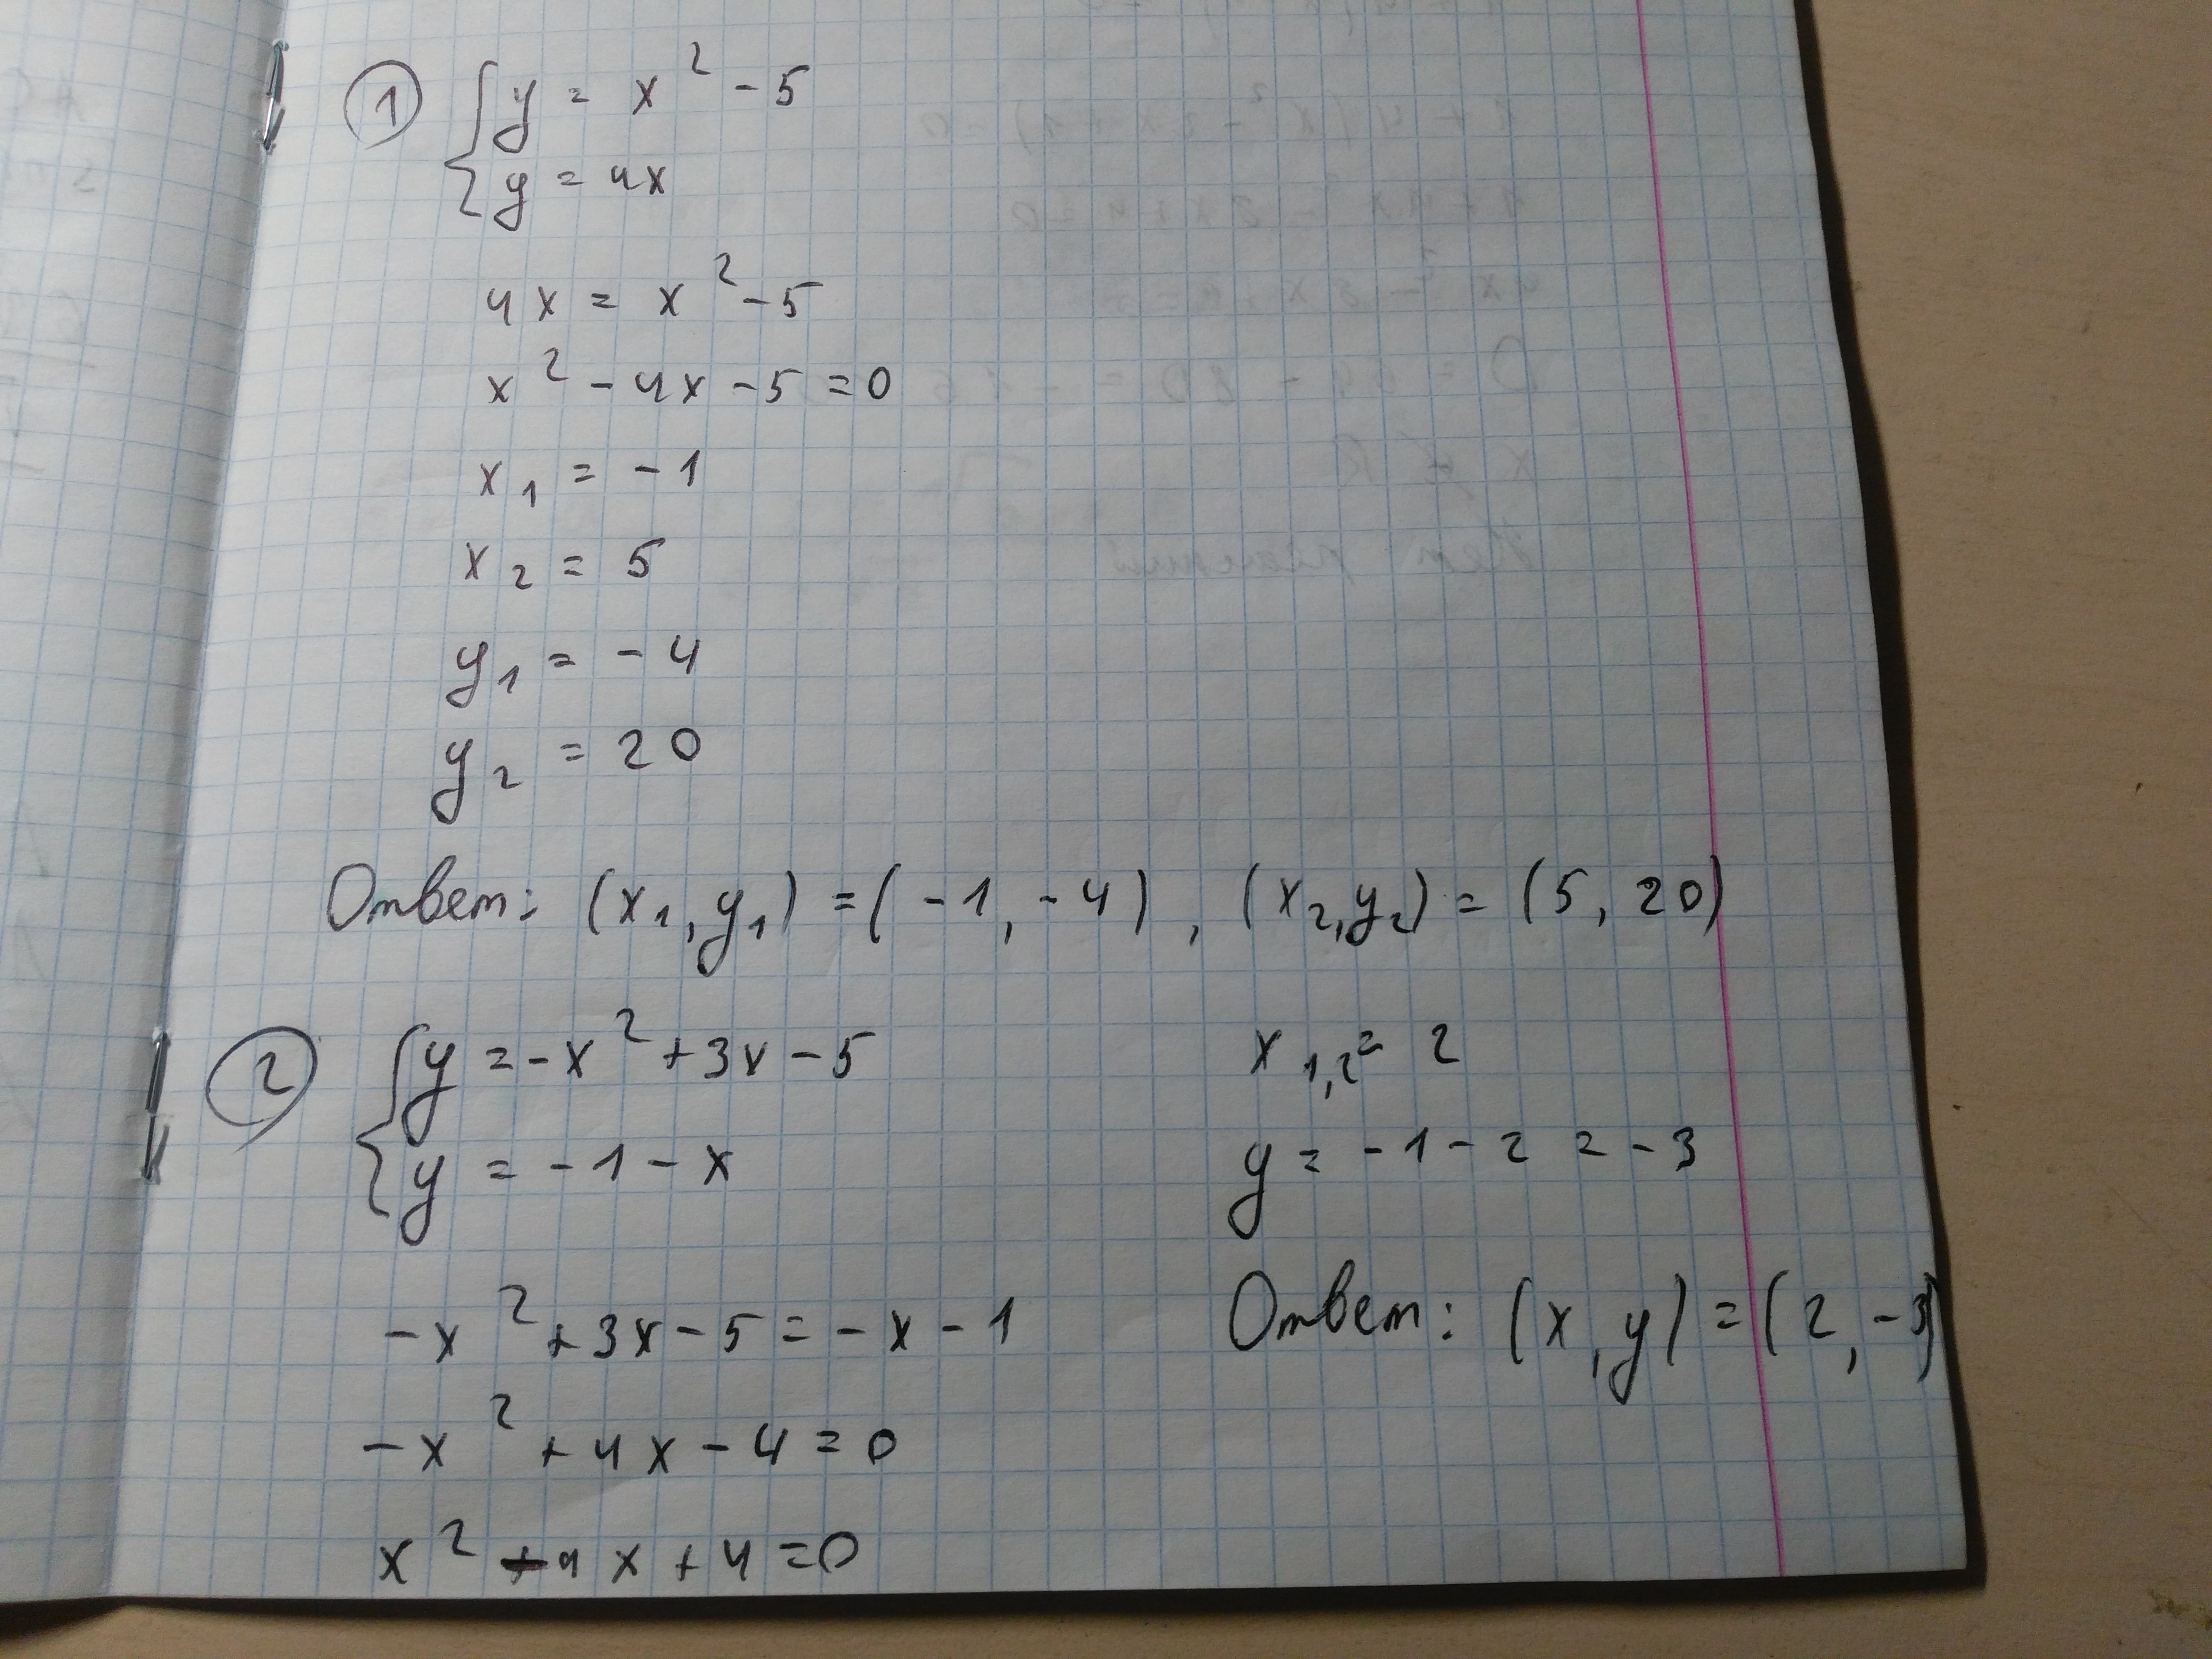 1
y = x² - 5
y = 4x
4x = x² - 5
x² - 4x - 5 = 0
x₁ = -1
x₂ = 5
y₁ = -4
y₂ = 20
Ответ: (x₁, y₁) = (-1, -4), (x₂, y₂) = (5, 20)
2
y = -x² + 3x - 5
y = -1 - x
-x² + 3x - 5 = -x - 1
-x² + 4x - 4 = 0
x² - 4x + 4 = 0
x₁,₂ = 2
y = -1 - 2 = -3
Ответ: (x, y) = (2, -3)